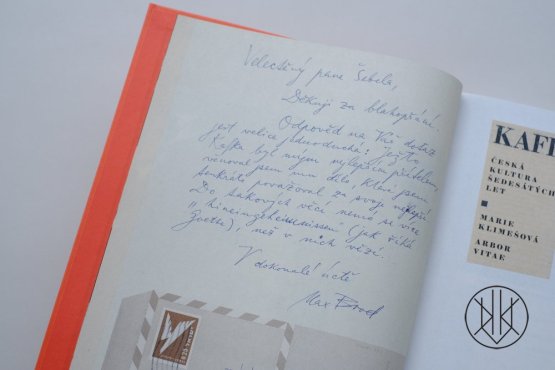 Velectěný pane Šebela,
Děkuji za blahopřání.
Odpověď na Váš dotaz
jest velice jednoduchá: ježto
Kafka byl mým nejlepším přítelem,
věnoval jsem mu dílo, které jsem
tenkráte považoval za svoje nejlepší
Do takových věcí nemá se více
"hineingeheimnissen" (jak říká
Goethe), než v nich vězí.
V dokonalé úctě
Max Brod
KAFK
ČESKÁ
KULTURA
ŠEDESÁTÝCH
LET
MARIE
KLIMEŠOVÁ
ARBOR
VITAE